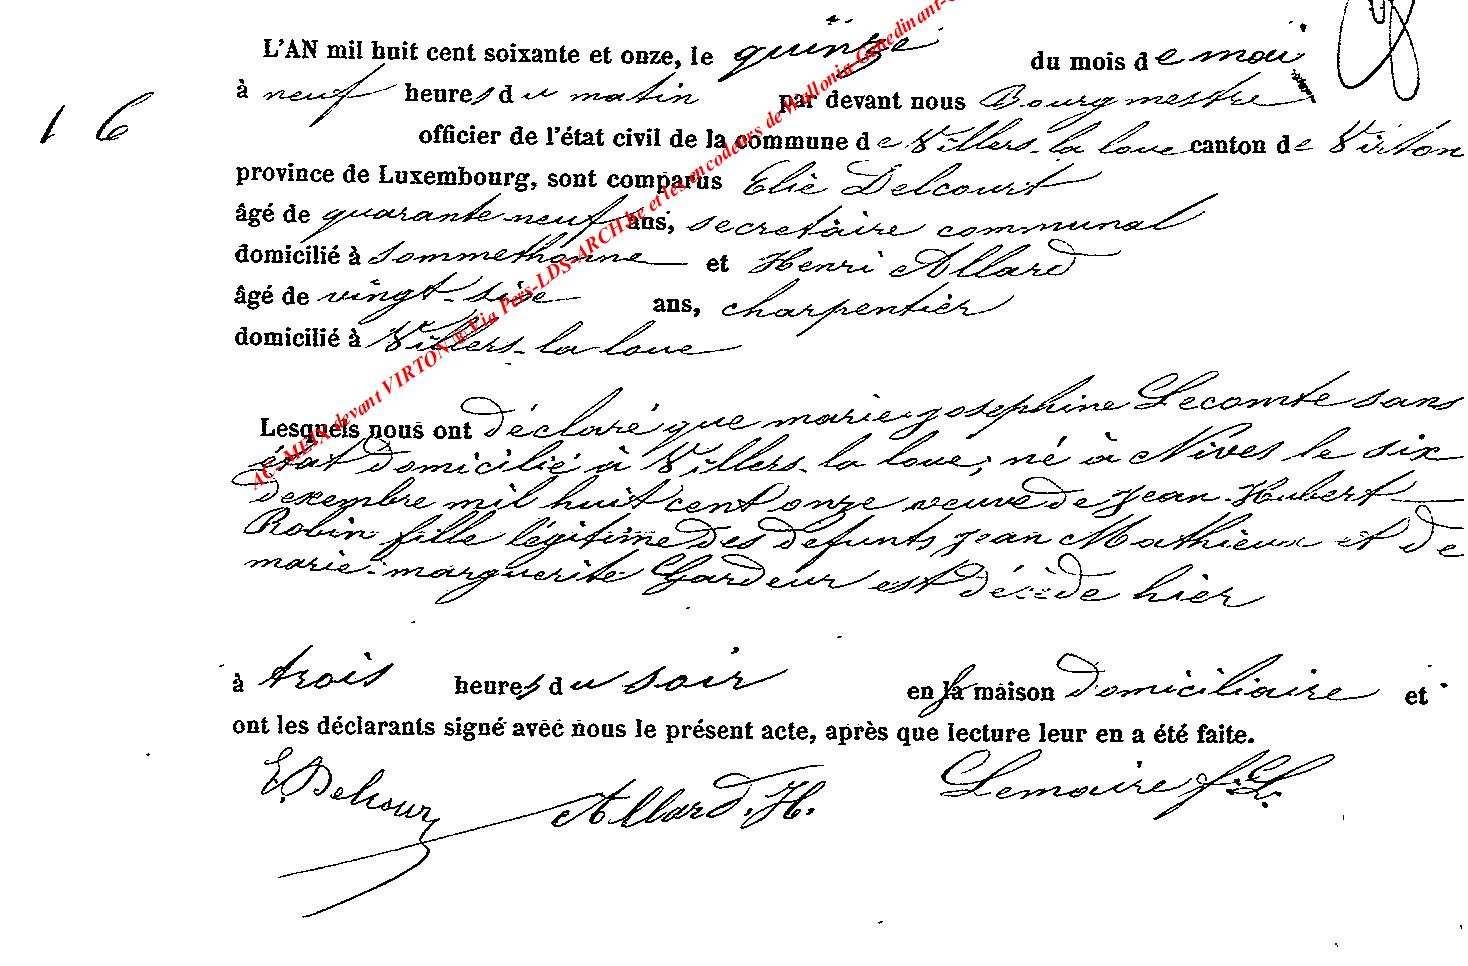 L'AN mil huit cent soixante et onze, le quinze du mois de mai
16 à neuf heures du matin par devant nous Bourgmestre
officier de l'état civil de la commune de Villers-la loue canton de Virton
province de Luxembourg, sont comparus Elie Delcourt
âgé de quarante-neuf ans, secretaire communal
domicilié à Sommethonne et Henri Allard
âgé de vingt-seize ans, charpentier
domicilié à Villers-la loue
Lesquels nous ont déclaré que marie-josephine Lecomte sans
état domicilié à Villers-la loue, né à Nives le six
dexembre mil huit cent onze veuve de Jean-Hubert
Robin fille légitime des defunts jean Mathieux et de
marie-marguerite Gardeur est décédé hier
à trois heures du soir en sa maison domiciliaire et
ont les déclarants signé avec nous le présent acte, après que lecture leur en a été faite.
E. Delcour Allard. H. Lemaire f. L.
AC-MLIN devant VIRTON Via Pers-LDS-ARCH.be et les encodeurs de Wallonia